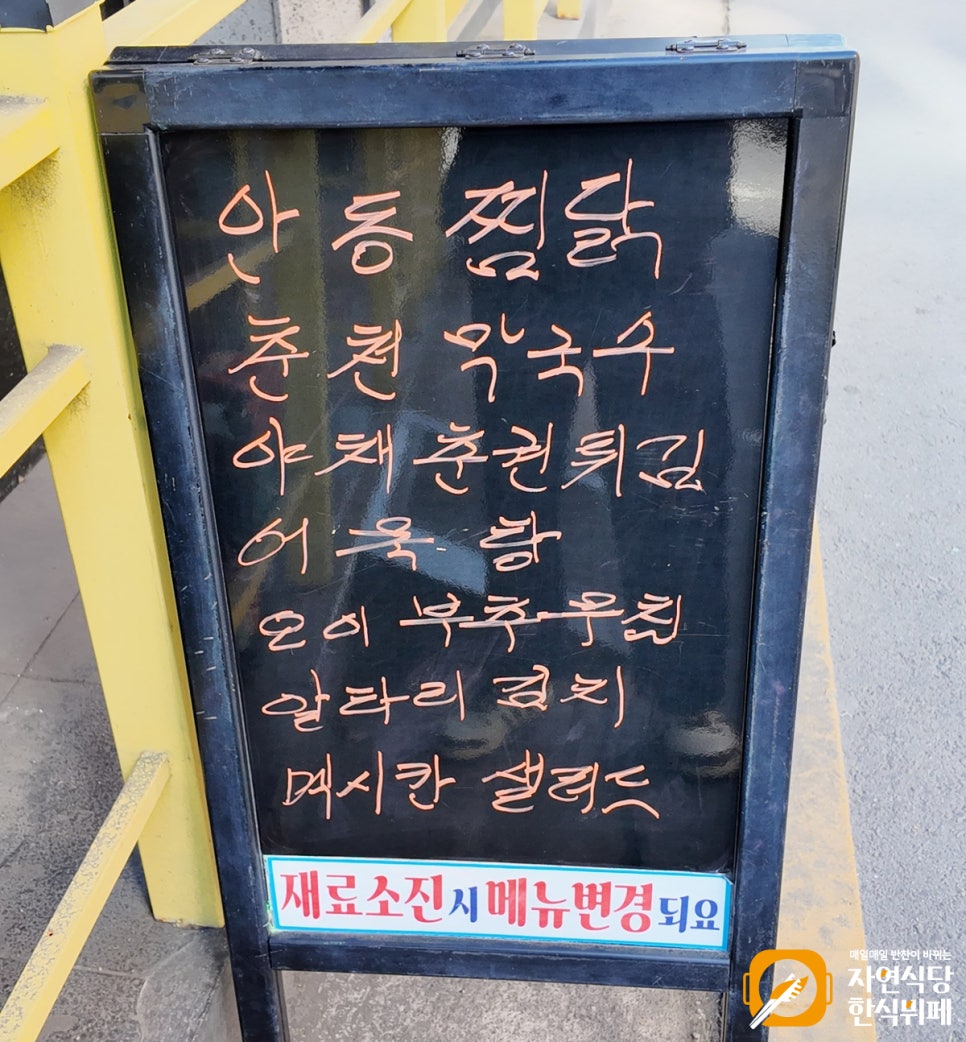 안동찜닭
춘천 막국수
야채춘권튀김
어묵탕
오이부추무침
알타리 김치
멕시칸 샐러드
재료소진시 메뉴변경되요
매일매일 반찬이 바뀌는
자연식당
한식뷔페